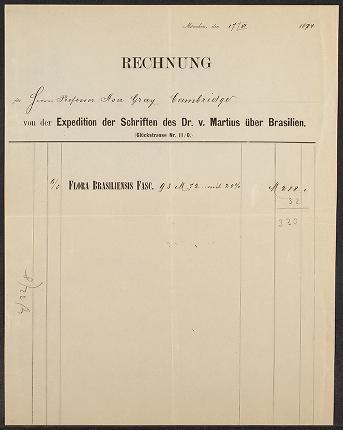 München, den 17/VI 1884
RECHNUNG
für Herrn Professor Asa Gray Cambridge
von der Expedition der Schriften des Dr. v. Martius über Brasilien.
(Glückstrasse Nr. 11/0.)
FLORA BRASILIENSIS FASC. 93 M 72 mit 20%
M 288
32
320